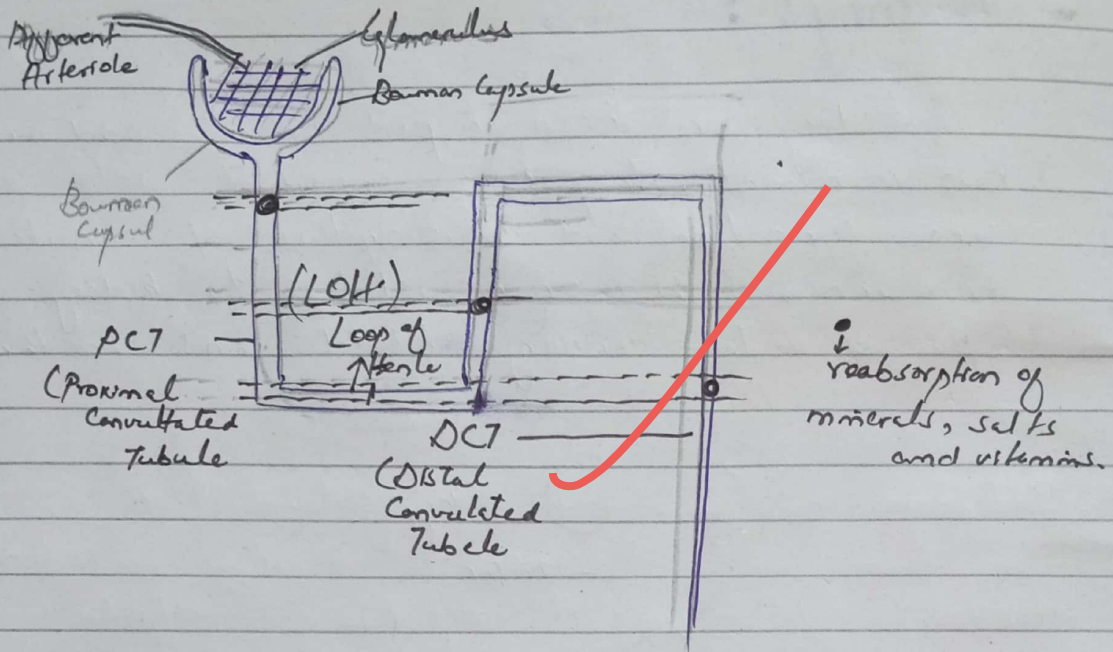 Afferent
Arteriole
Glomerullus
Bowman Capsule
Bowman
Capsul
(LOH)
Loop of
Henle
PCT
(Proximal
Convultated
Tubule
DCT
(Distal
Convulated
Tubele
reabsorption of
minerals, salts
and vitamins.